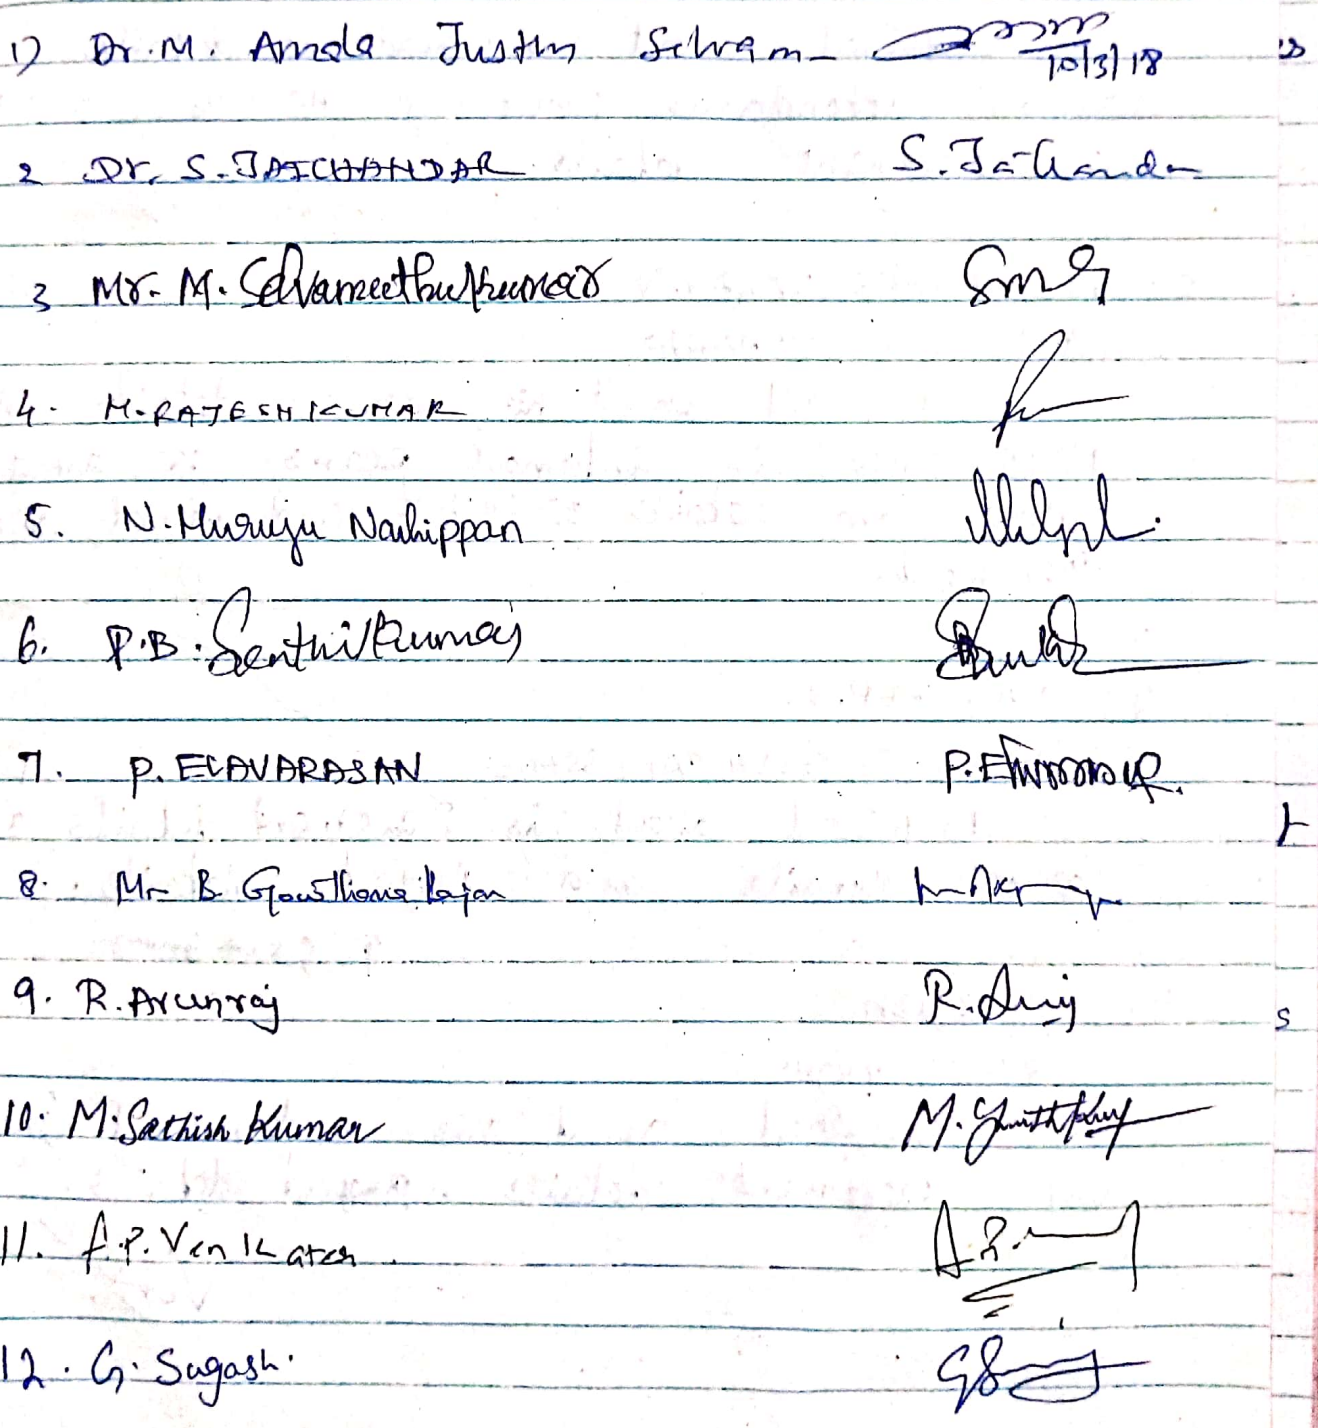 1) Dr. M. Amala Justin Selvam 10/3/18
2 Dr. S. JAICHANDAR S. Jaichandar
3 Mr. M. Selvameethukumar
4. M. RAJESH KUMAR
5. N. Murugu Nachippan
6. P.B. Senthilkumar
7. P. ELAVARASAN
8. Mr B. Gowthama Rajan
9. R. Arunraj
10. M. Sathish Kumar
11. A.P. Venkatesh
12. G. Sugash.